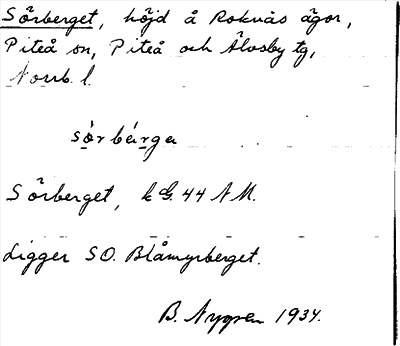 Sörberget, höjd å Roknäs ägor,
Piteå sn, Piteå och Älvsby tg,
Norrb. l.
sörbärga
Sörberget, k G. 44 N M.
Ligger SO. Blåmyrberget.
B. Nygren 1934.